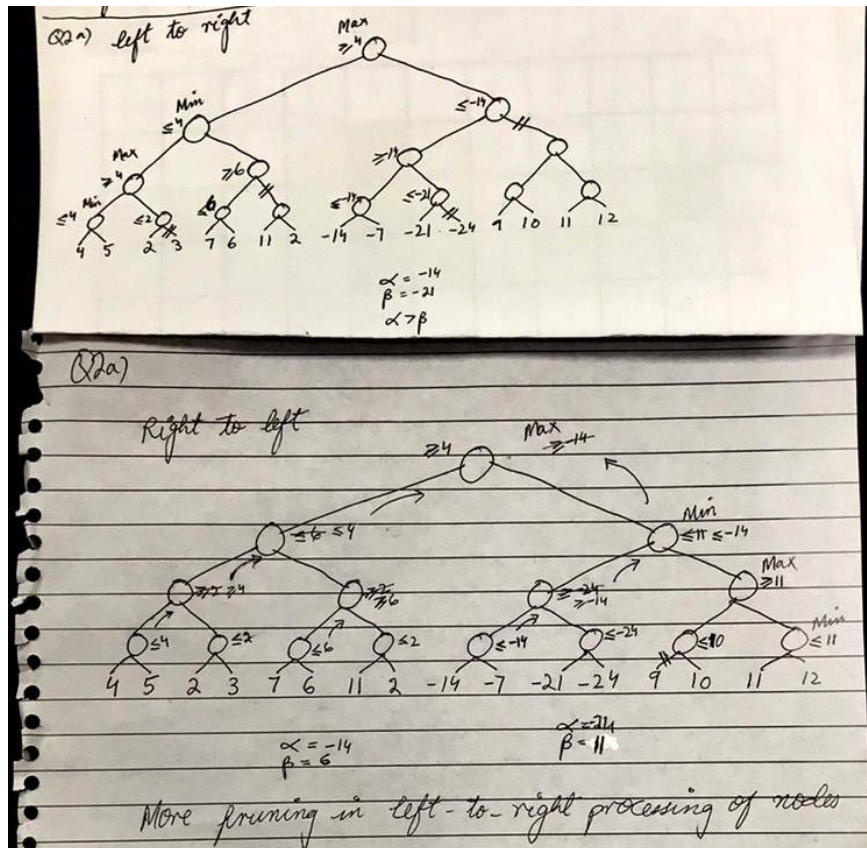 Q2a) left to right
Max
≥4
Min
≤4
≤-14
Max
≥4
≥6
≥-14
≤4 Min
≤2
≤6
≤-14
≤-21
4 5 2 3 7 6 11 2 -14 -7 -21 -24 9 10 11 12
α = -14
β = -21
α > β
Q2a)
Right to left
≥4
Max
≥-14
Min
≤6 ≤4
≤11 ≤-14
Max
≥2 ≥4
≥2
≥6
≥-24
≥-14
≥11
Min
≤4
≤2
≤6
≤2
≤-14
≤-24
≤10
≤11
4 5 2 3 7 6 11 2 -14 -7 -21 -24 9 10 11 12
α = -14
β = 6
α = -24
β = 11
More pruning in left-to-right processing of nodes